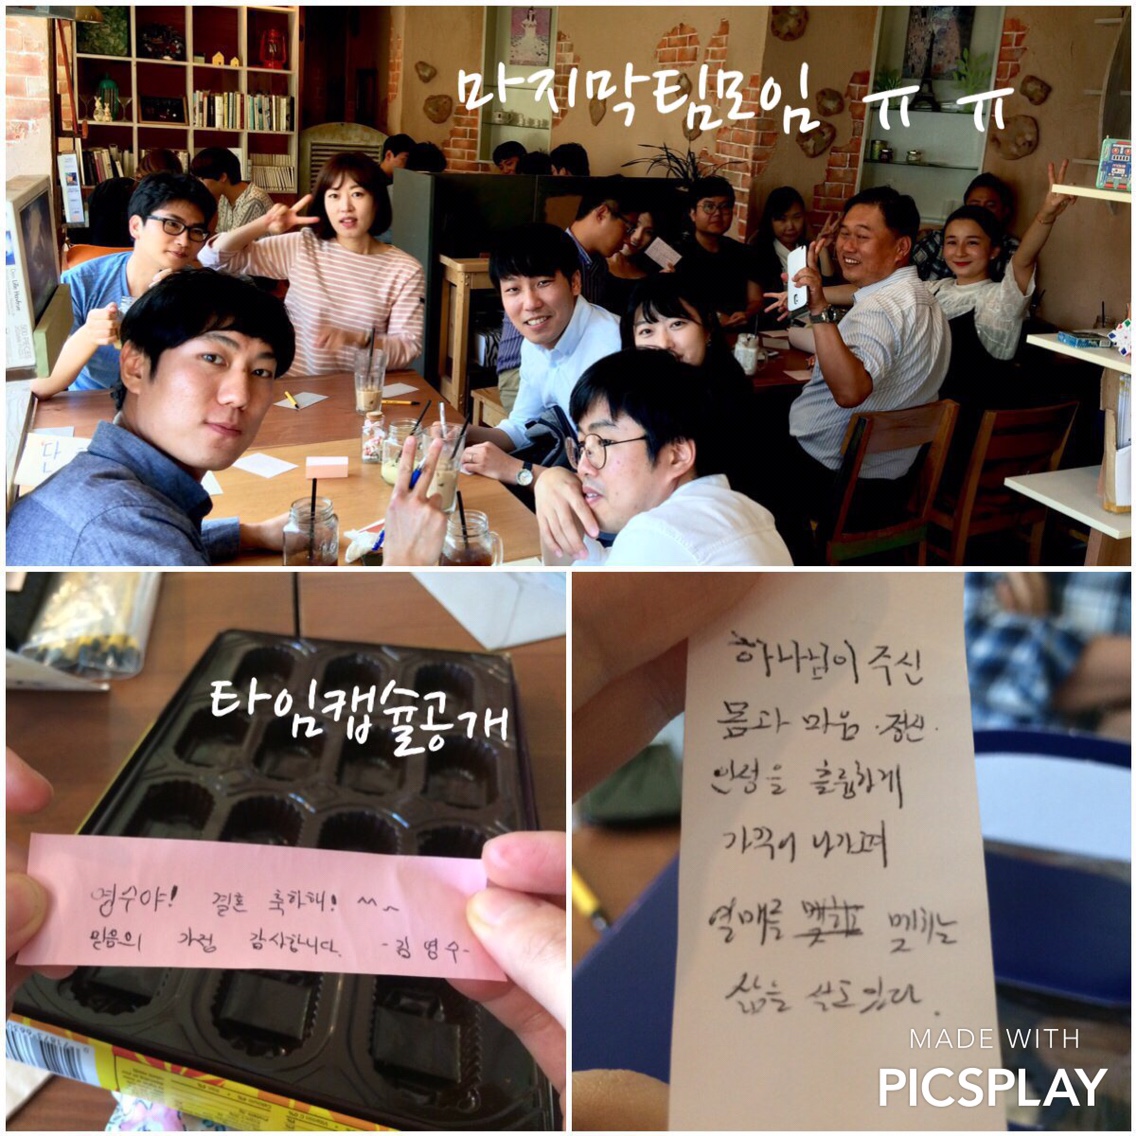 마지막팀모임 ㅠ ㅠ
타임캡슐공개
영수야! 결혼 축하해! ^^~
믿음의 가정 감사합니다. -김영수-
하나님이 주신
몸과 마음·정신·
인성을 훌륭하게
가꾸어 나가고며
열매를 맺히는
삶을 살고있다.
MADE WITH
PICSPLAY